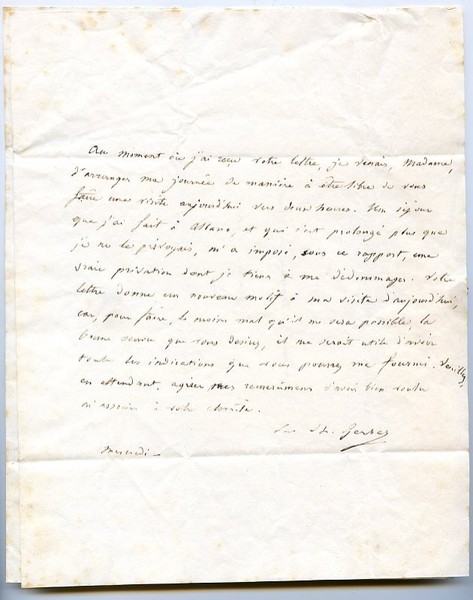 Au moment où j'ai reçu votre lettre, je venais, Madame,
d'arranger ma journée de manière à être libre de vous
faire une visite aujourd'hui vers deux heures. Un séjour
que j'ai fait à et qui s'est prolongé plus que
je ne le prévoyais, m'a imposé, sous ce rapport, une
vraie privation dont je tiens à me dédommager. Votre
lettre donne un nouveau motif à ma visite d'aujourd'hui,
car, pour faire, le moins mal qu'il me sera possible, la
bonne œuvre que vous désirez, il me serait utile d'avoir
toutes les indications que vous pourrez me fournir. Veuillez,
en attendant, agréer mes remerciemens d'avoir bien voulu
m'associer à votre charité.
Mercredi